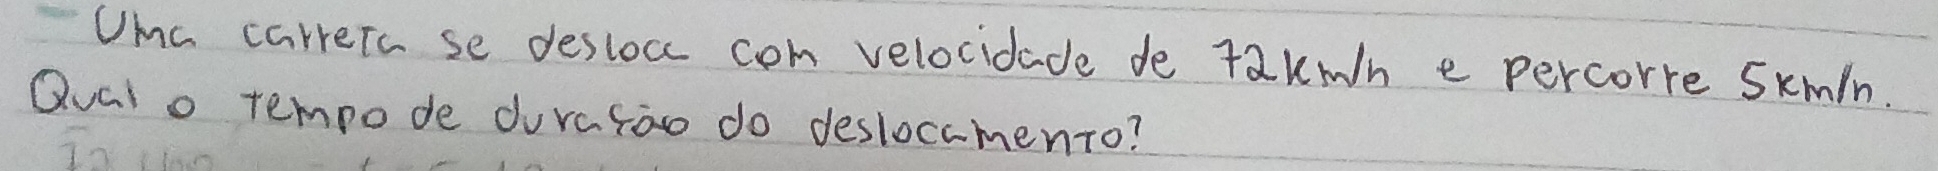 Uma carreta se desloca com velocidade de 72km/h e percorre 5km/h.
Qual o tempo de duração do deslocamento?